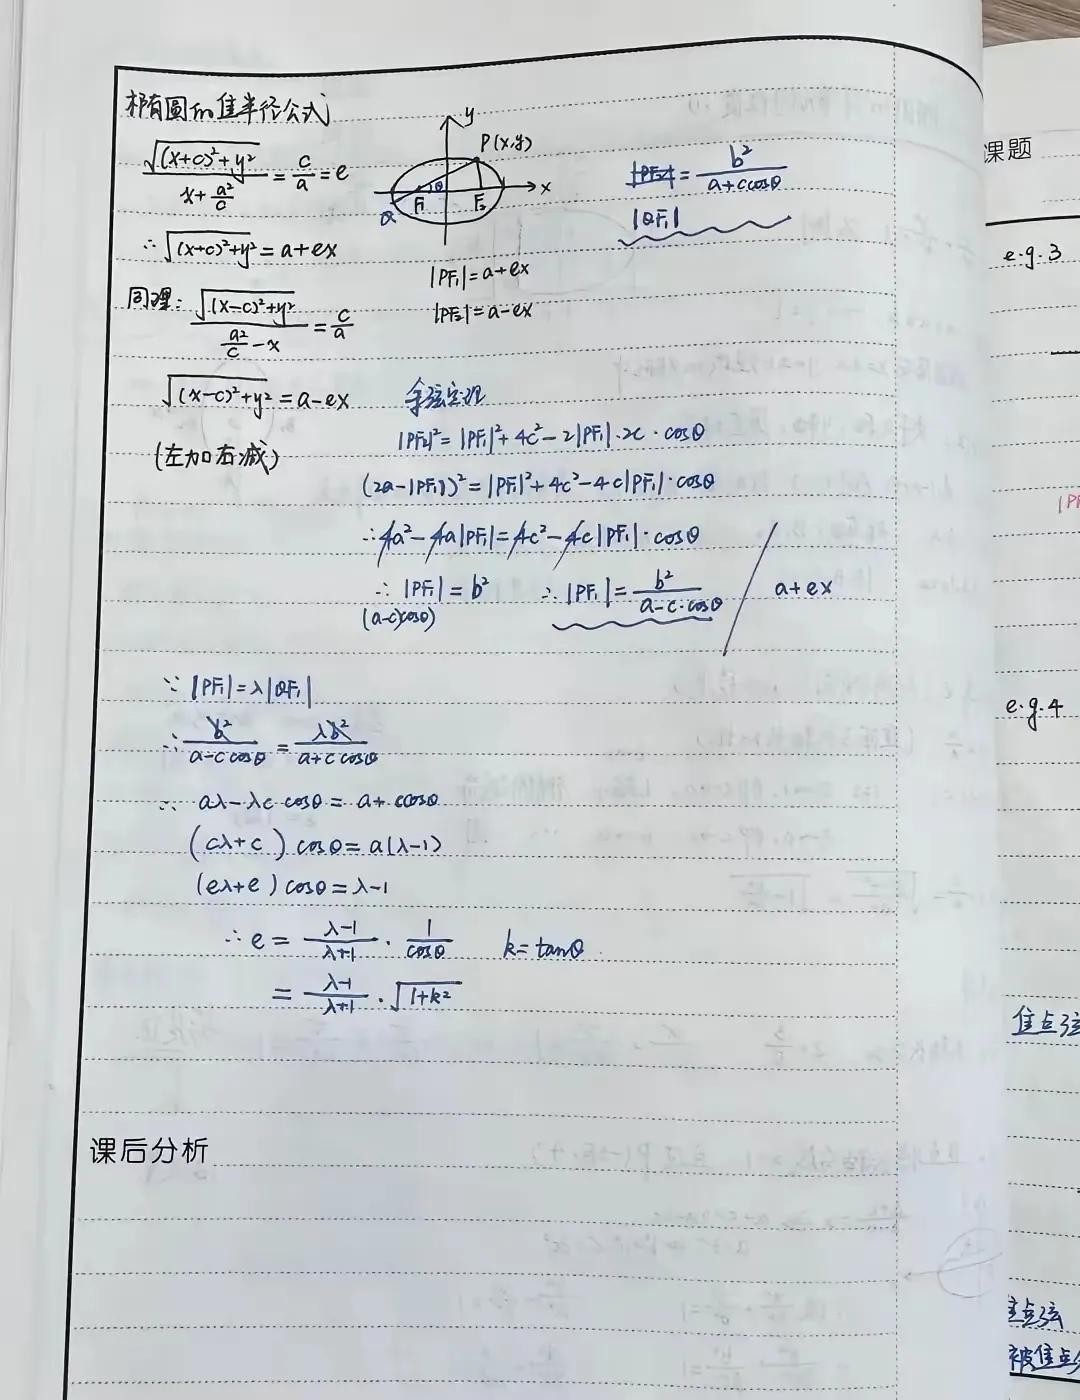 椭圆的焦半径公式
√((x+c)²+y²) / (x+a²/c) = c/a = e
∴ √((x+c)²+y²) = a+ex
同理: √((x-c)²+y²) / (a²/c - x) = c/a
√((x-c)²+y²) = a-ex
(左加右减)
y
P(x,y)
x
θ
F₁
F₂
Q
|PF₁|=a+ex
|PF₂|=a-ex
|PF₂| = b²/(a+c cosθ)
|QF₁|
余弦定理
|PF₂|²=|PF₁|²+4c²-2|PF₁|·2c·cosθ
(2a-|PF₁|)²=|PF₁|²+4c²-4c|PF₁|·cosθ
∴4a²-4a|PF₁|=4c²-4c|PF₁|·cosθ
∴ |PF₁| = b²
(a-c)cosθ)
∴ |PF₁| = b²/(a-c·cosθ)
a+ex
∵ |PF₁|=λ|QF₁|
∴ b²/(a-c cosθ) = λb²/(a+c cosθ)
∴ aλ-λc cosθ = a+ccosθ
(cλ+c) cosθ=a(λ-1)
(eλ+e) cosθ=λ-1
∴ e = (λ-1)/(λ+1) · 1/cosθ
k=tanθ
= (λ-1)/(λ+1) · √(1+k²)
课后分析
课题
e.g.3
e.g.4
焦点弦
焦点弦
被焦点